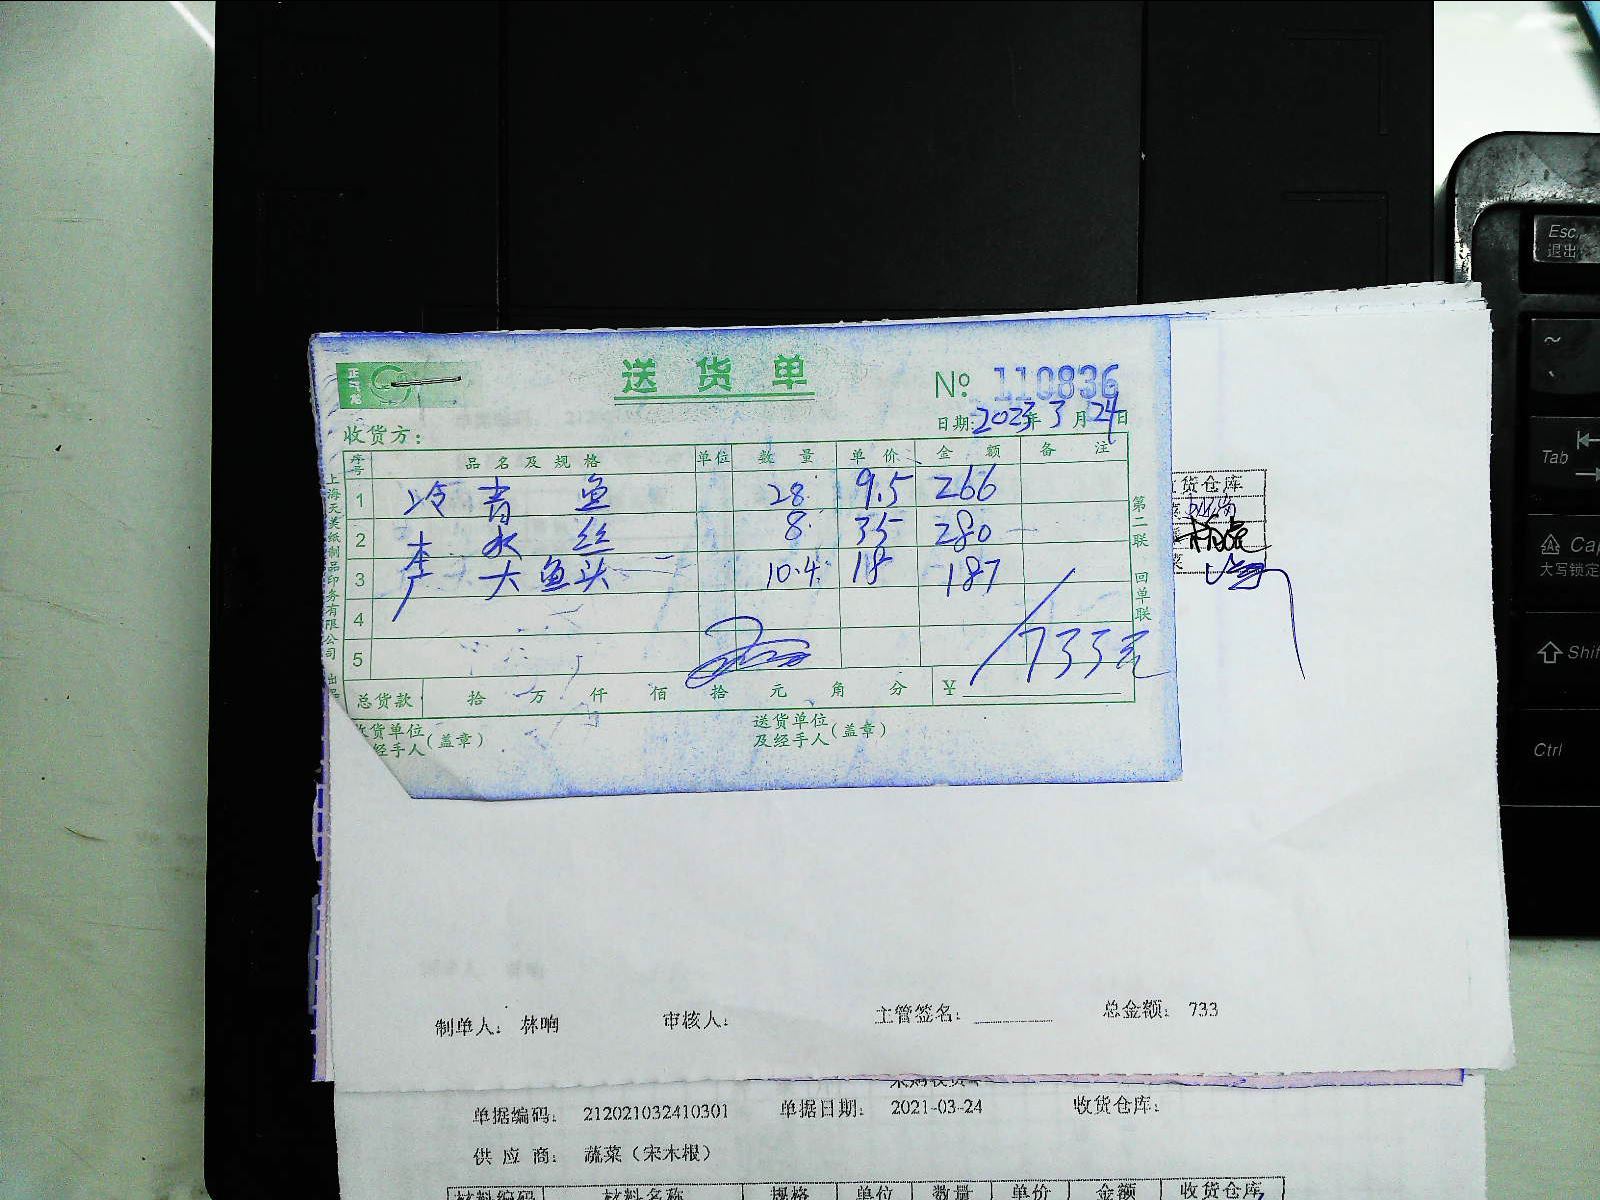 送货单
№ 110836
日期: 2023年3月24日
收货方：
序号 品名及规格 单位 数量 单价 金额 备注
1 冷青鱼 28 9.5 266
2 水丝 8 35 280
3 大鱼头 10.4 18 187
4
5
733元
总货款 拾 万 仟 佰 拾 元 角 分 ¥
货单位
经手人（盖章）
送货单位
及经手人（盖章）
上海天美纸制品印务有限公司 出品
第二联 回单联
货仓库
制单人： 林响 审核人： 主管签名： 总金额： 733
单据编码： 212021032410301 单据日期： 2021-03-24 收货仓库：
供应商： 蔬菜（宋木根）
材料编码 材料名称 规格 单位 数量 单价 金额 收货仓库
Esc
退出
~
Tab
大写锁定
Ctrl